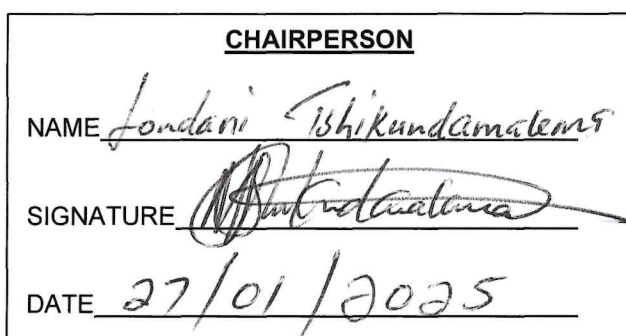 CHAIRPERSON
NAME Londani Tshikundamalema
SIGNATURE
DATE 27/01/2025